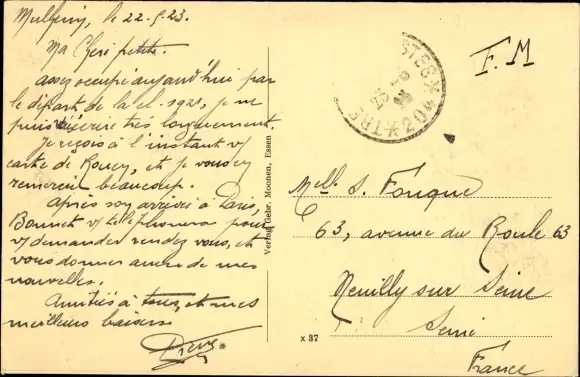 le 22.5.23.
Ma Chère petite.
assez occupé aujourd'hui par
le départ de la cl. 1921, je ne
puis t'écrire très longuement.
Je reçois à l'instant v/
carte de Rouen, et je vous en
remercie beaucoup.
Après son arrivée à Paris,
Bonnet v/ téléphonera pour
v/ demander rendez vous, et
vous donner de mes
nouvelles.
Amitiés à tous, et mes
meilleurs baisers
Verlag Gebr. Moonen, Essen
X 37
F. M
204
Melle S. Fouque
63, avenue du Roule 63
Neuilly sur Seine
Seine
France